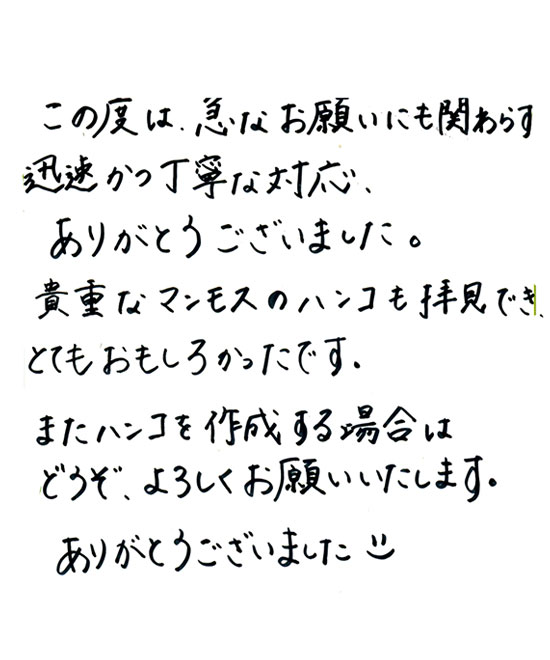 この度は、急なお願いにも関わらず
迅速かつ丁寧な対応、
ありがとうございました。
貴重なマンモスのハンコも拝見でき、
とてもおもしろかったです。
またハンコを作成する場合は
どうぞ、よろしくお願いいたします。
ありがとうございました